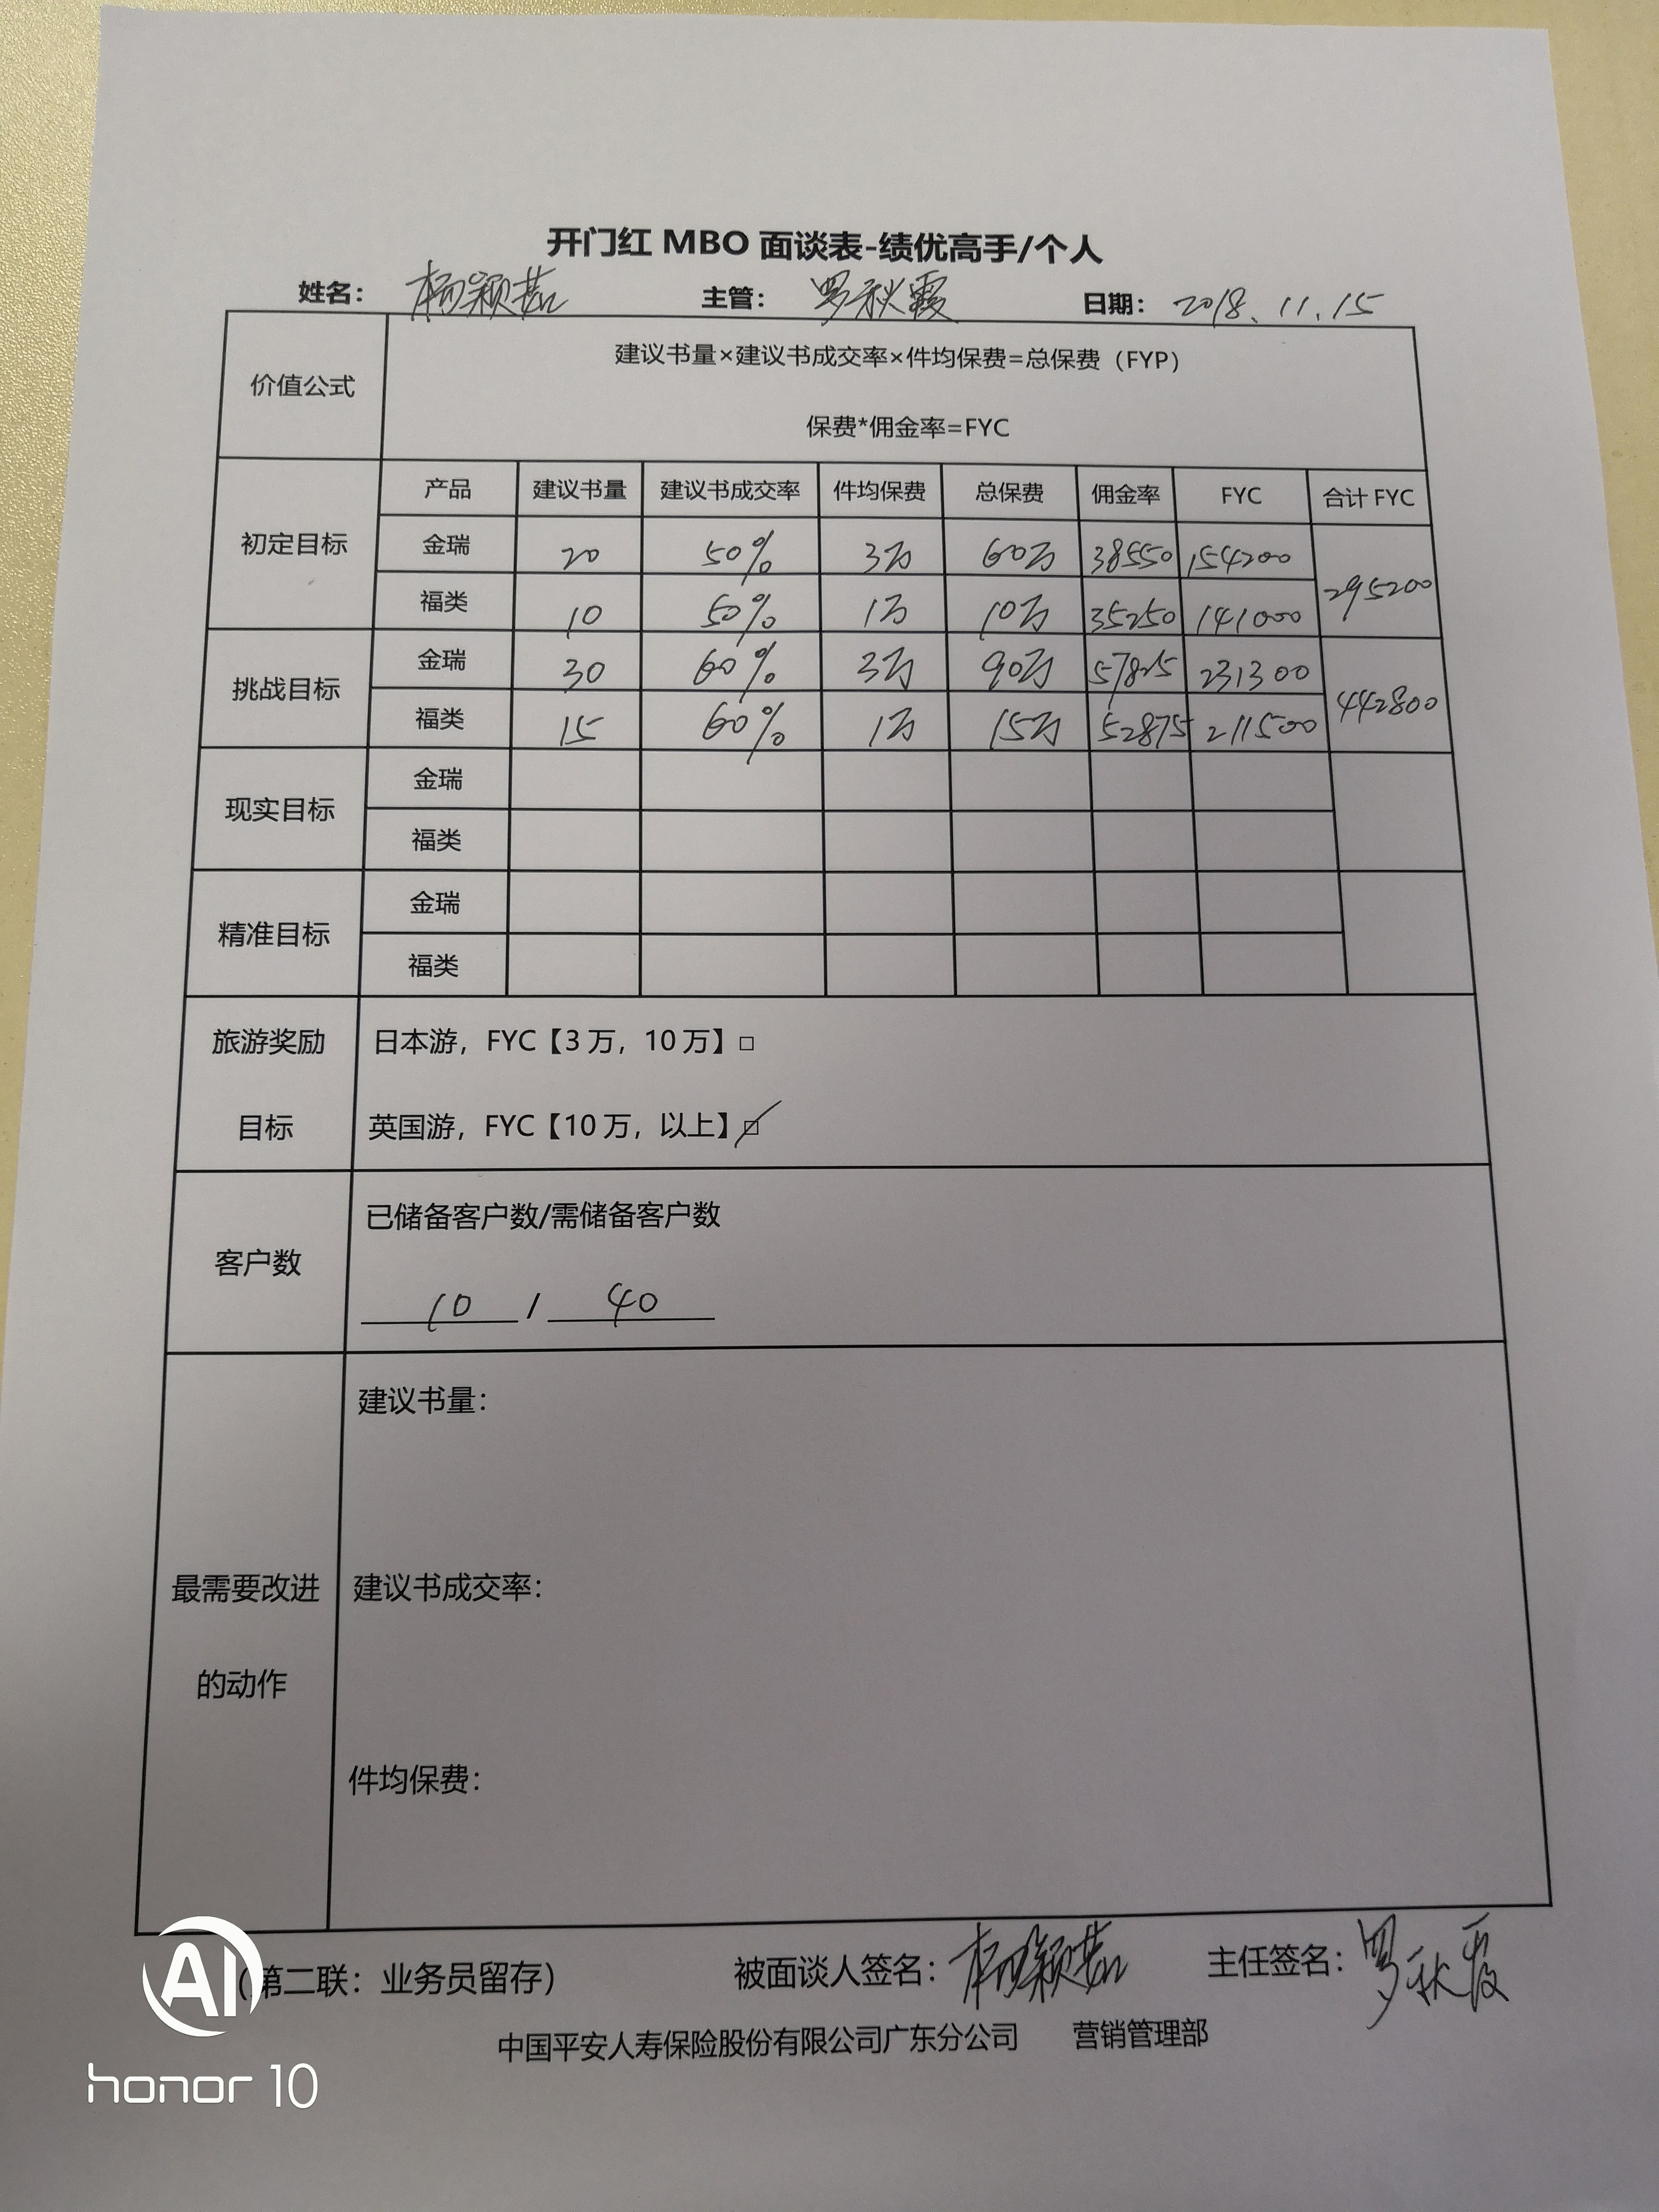 开门红 MBO 面谈表-绩优高手/个人
姓名： 杨颖茹 主管： 罗秋霞 日期： 2018.11.15
价值公式
建议书量×建议书成交率×件均保费=总保费（FYP）
保费*佣金率=FYC
初定目标 产品 建议书量 建议书成交率 件均保费 总保费 佣金率 FYC 合计 FYC
金瑞 20 50% 3万 60万 38550 154200 295200
福类 10 50% 1万 10万 35250 141000
挑战目标 金瑞 30 60% 3万 90万 57825 231300 442800
福类 15 60% 1万 15万 52875 211500
现实目标 金瑞
福类
精准目标 金瑞
福类
旅游奖励
目标
日本游，FYC【3 万，10 万】□
英国游，FYC【10 万，以上】□
客户数
已储备客户数/需储备客户数
10 / 40
最需要改进
的动作
建议书量：
建议书成交率：
件均保费：
（第二联：业务员留存） 被面谈人签名： 杨颖茹 主任签名： 罗秋霞
中国平安人寿保险股份有限公司广东分公司 营销管理部
AI
honor 10